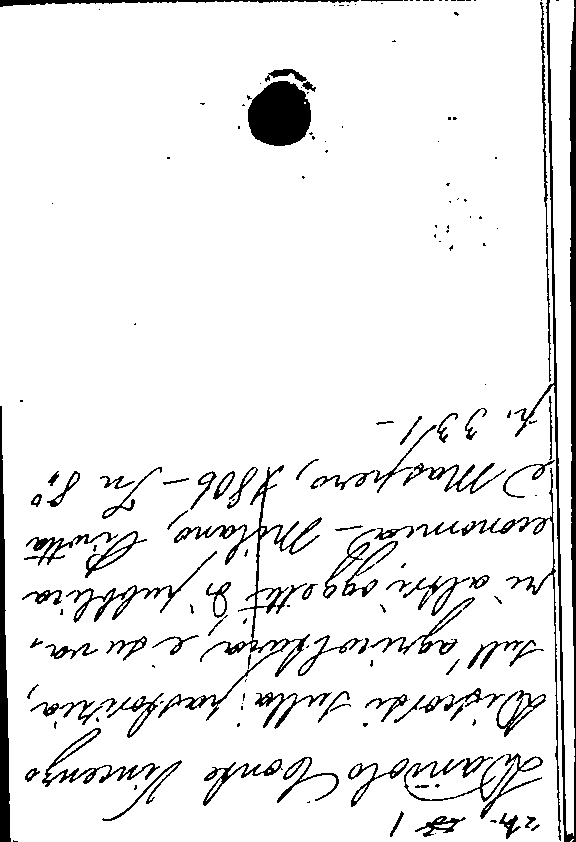 Dandolo Conte Vincenzo
Discorsi sulla pastorizia,
sull'agricoltura, e su va-
ri altri oggetti di pubblica
economia - Milano, Pirotta
e Maspero, 1806 - In 8.°
p. 331 -